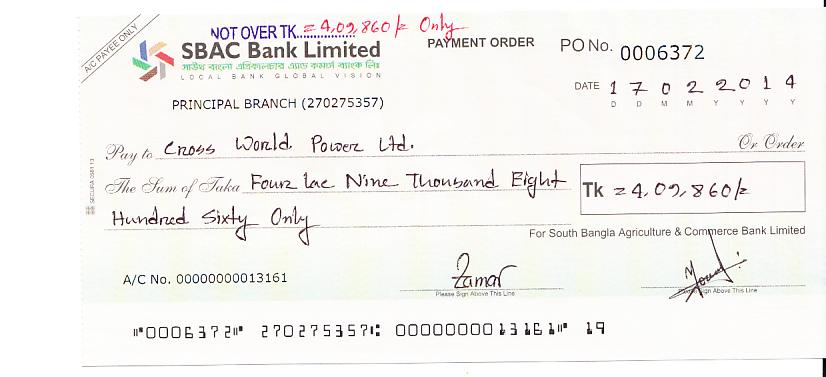 A/C PAYEE ONLY
NOT OVER TK. = 4,09,860/= Only
SBAC Bank Limited
সাউথ বাংলা এগ্রিকালচার এ্যান্ড কমার্স ব্যাংক লিঃ
LOCAL BANK GLOBAL VISION
PAYMENT ORDER
PO No. 0006372
DATE 1 7 0 2 2 0 1 4
D D M M Y Y Y Y
PRINCIPAL BRANCH (270275357)
Pay to Cross World Power Ltd. Or Order
The Sum of Taka Four lac Nine Thousand Eight
Hundred Sixty Only
Tk = 4,09,860/=
For South Bangla Agriculture & Commerce Bank Limited
A/C No. 00000000013161
Please Sign Above This Line
Please Sign Above This Line
⑈0006372⑈ 270275357⑆ 00000000013161⑈ 19